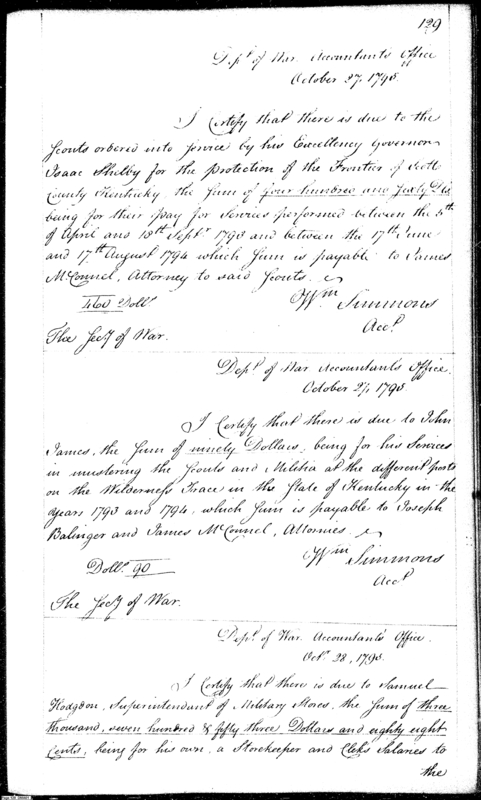 129
Dept. of War Accountant's Office
October 27, 1795.
I Certify that there is due to the
Scouts ordered into service by his Excellency Governor
Isaac Shelby for the protection of the Frontier of Scott
County Kentucky, the Sum of four hundred and sixty Dls.
being for their pay for Services performed between the 5th
of April and 18th Septr. 1793 and between the 17th June
and 17th August 1794 which Sum is payable to James
McConnel, Attorney to said Scouts.
Wm Simmons
Acct.
460 Dolls.
The Secy of War.
Dept. of War Accountant's Office.
October 27, 1795
I Certify that there is due to John
James, the Sum of ninety Dollars, being for his Services
in mustering the Scouts and Militia at the different posts
on the Wilderness Trace in the State of Kentucky in the
years 1793 and 1794, which Sum is payable to Joseph
Balinger and James McConnel, Attornies.
Wm Simmons
Acct.
Dolls. 90
The Secy of War.
Dept. of War Accountant's Office.
Oct. 28, 1795.
I Certify that there is due to Samuel
Hodgdon, Superintendant of Military Stores, the Sum of three
thousand, seven hundred & fifty three Dollars and eighty eight
Cents, being for his own, a Storekeeper and Clerks Salaries to
the